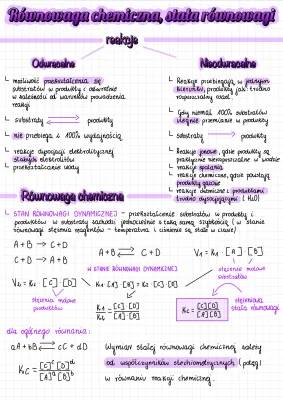 Równowaga chemiczna, stała równowagi
reakcje
Odwracalne
Nieodwracalne
możliwość przekształcenia się
substratów w produkty i odwrotnie
w zależności od warunków prowadzenia
reakcji
substraty ⇄ produkty
nie przebiega z 100% wydajnością
reakcje dysocjacji elektrolitycznej
słabych elektrolitów
przekształcanie wody
Reakcje przebiegają w jednym
kierunku, produkty jako trudno
rozpuszczalny osad
Gdy niemal 100% substratów
ulegnie przemianie w produkty
substraty → produkty
Reakcje jonowe, gdzie produkty są
praktycznie nierozpuszczalne w wodzie
reakcje spalania
reakcje chemiczne, gdzie powstają
produkty gazowe
reakcje chemiczne z produktami
trudno dysocjującymi (H₂O)
Równowaga chemiczna
STAN RÓWNOWAGI DYNAMICZNEJ - przekształcenie substratów w produkty i
produktów w substraty zachodzi jednocześnie z taką samą szybkością (w stanie
równowagi stężenia reagentów - temperatura i ciśnienie są stałe w czasie)
A + B → C + D
C + D → A + B
A + B ⇄ C + D
V₁ = K₁ · [A] · [B]
W STANIE RÓWNOWAGI DYNAMICZNEJ
stężenie molowe
substratów
V₂ = K₂ · [C] · [D]
K₁ · [A] · [B] = K₂ · [C] · [D]
stężenia molowe
produktów
K₁/K₂ = [C]·[D]/[A]·[B]
Kc = [C][D]/[A][B]
stężeniowa
stała równowagi
dla ogólnego równania:
aA + bB ⇄ cC + dD
Kc = [C]ᶜ[D]ᵈ/[A]ᵃ[B]ᵇ
Wymiar stałej równowagi chemicznej zależy
od współczynników stechiometrycznych (potęg)
w równaniu reakcji chemicznej.